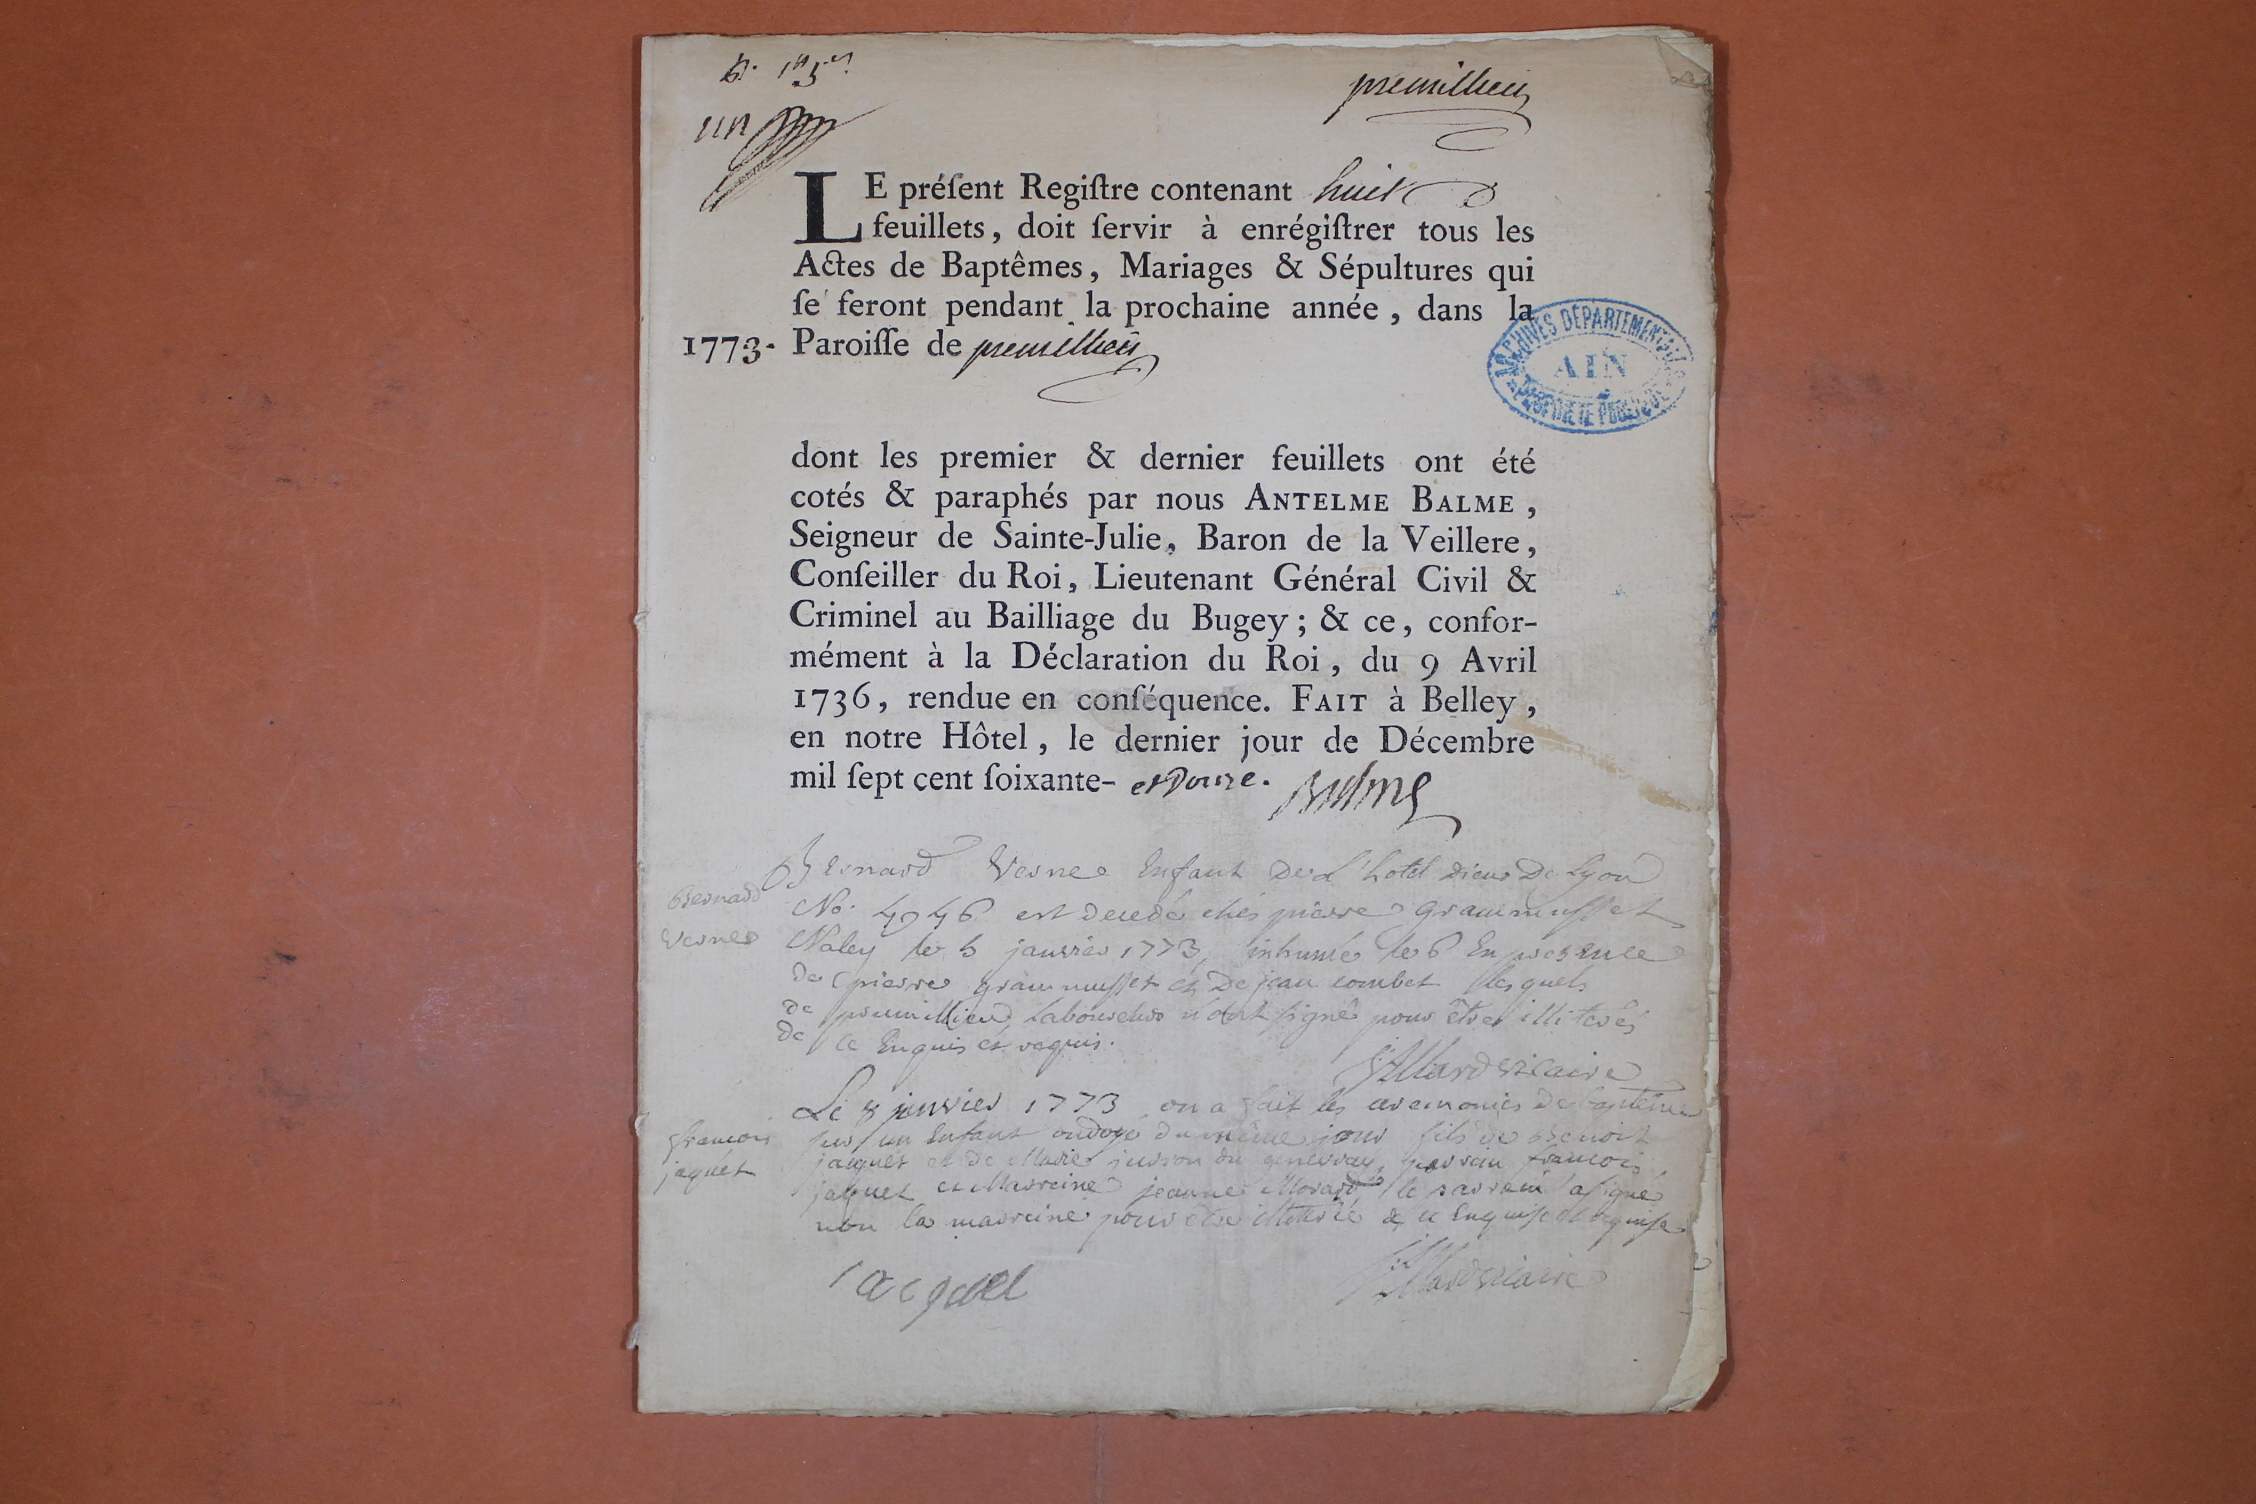 premillieu
un
LE préſent Regiſtre contenant huit
feuillets, doit ſervir à enrégiſtrer tous les
Actes de Baptêmes, Mariages & Sépultures qui
ſe feront pendant la prochaine année, dans la
1773. Paroiſſe de premillieu
ARCHIVES DÉPARTEMENTALES
AIN
PROPRIÉTÉ PUBLIQUE
dont les premier & dernier feuillets ont été
cotés & paraphés par nous ANTELME BALME,
Seigneur de Sainte-Julie, Baron de la Veillere,
Conſeiller du Roi, Lieutenant Général Civil &
Criminel au Bailliage du Bugey; & ce, confor-
mément à la Déclaration du Roi, du 9 Avril
1736, rendue en conſéquence. FAIT à Belley,
en notre Hôtel, le dernier jour de Décembre
mil ſept cent ſoixante- et Douze. Balme
Bernard Verne Enfant De L'hotel Dieu De Lyon
Bernard No. 4946 est decedé chés pierre grammusset
Verne Naley le 5 janvier 1773, inhumé le 6 En presence
de pierre grammusset et De jean combet lesquels
de premillieu laboureurs n'ont signé pour être illiterés
de ce Enquis et requis.
Allard vicaire
Le 8 janvier 1773 on a fait les ceremonies De baptême
françois sur un Enfant ondoyé du même jour fils de Benoit
jaquet jaquet et de Marie du parrain françois
jaquet et Marreine jeanne Morard le parrain a signé
non la marreine pour être illiterée de ce Enquise et requise
jacquet Allard vicaire